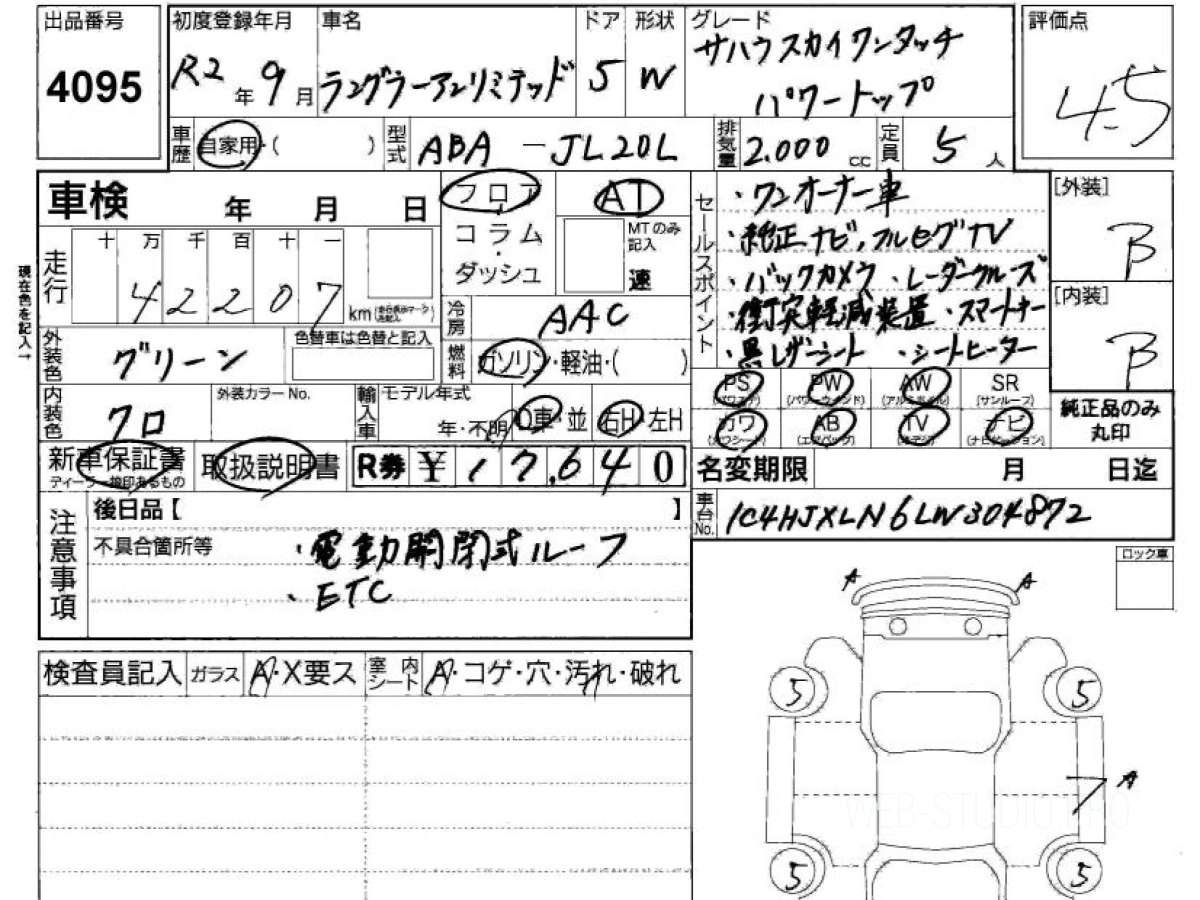 出品番号 初度登録年月 車名 ドア 形状 グレード 評価点
4095 R2年 9月 ラングラーアンリミテッド 5 W サハラ スカイワンタッチ
パワートップ 4.5
車歴 自家用・( ) 型式 ABA-JL20L 排気量 2.000 cc 定員 5人
車検 年 月 日 フロア AT セールスポイント ・ワンオーナー車 [外装] B
現在色を記入→
走行 十 万 千 百 十 一 コラム MTのみ記入 ・純正ナビ、フルセグTV
42207 km ダッシュ 速 ・バックカメラ ・レーダークルーズ [内装] B
冷房 AAC ・衝突軽減装置 ・スマートキー
外装色 グリーン 色替車は色替と記入 燃料 ガソリン・軽油・( ) ・黒レザーシート ・シートヒーター
PS (パワステ) PW (パワーウインド) AW (アルミホイル) SR (サンルーフ) 純正品のみ丸印
内装色 クロ 外装カラーNo. 輸入車 モデル年式 年・不明 D車・並 右H・左H
カワ (カワシート) AB (エアバック) TV ナビ (ナビゲーション)
新車保証書 ディーラー捺印あるもの 取扱説明書 R券 ¥17,640 名変期限 月 日迄
注意事項 後日品【 】 車台No. 1C4HJXLN6LW304872
不具合箇所等 ・電動開閉式ルーフ
・ETC
ロック車
A A
検査員記入 ガラス A・X要ス 室内シート A・コゲ・穴・汚れ・破れ
5 5
ア A
WEB-STUDIO.PRO
5 5